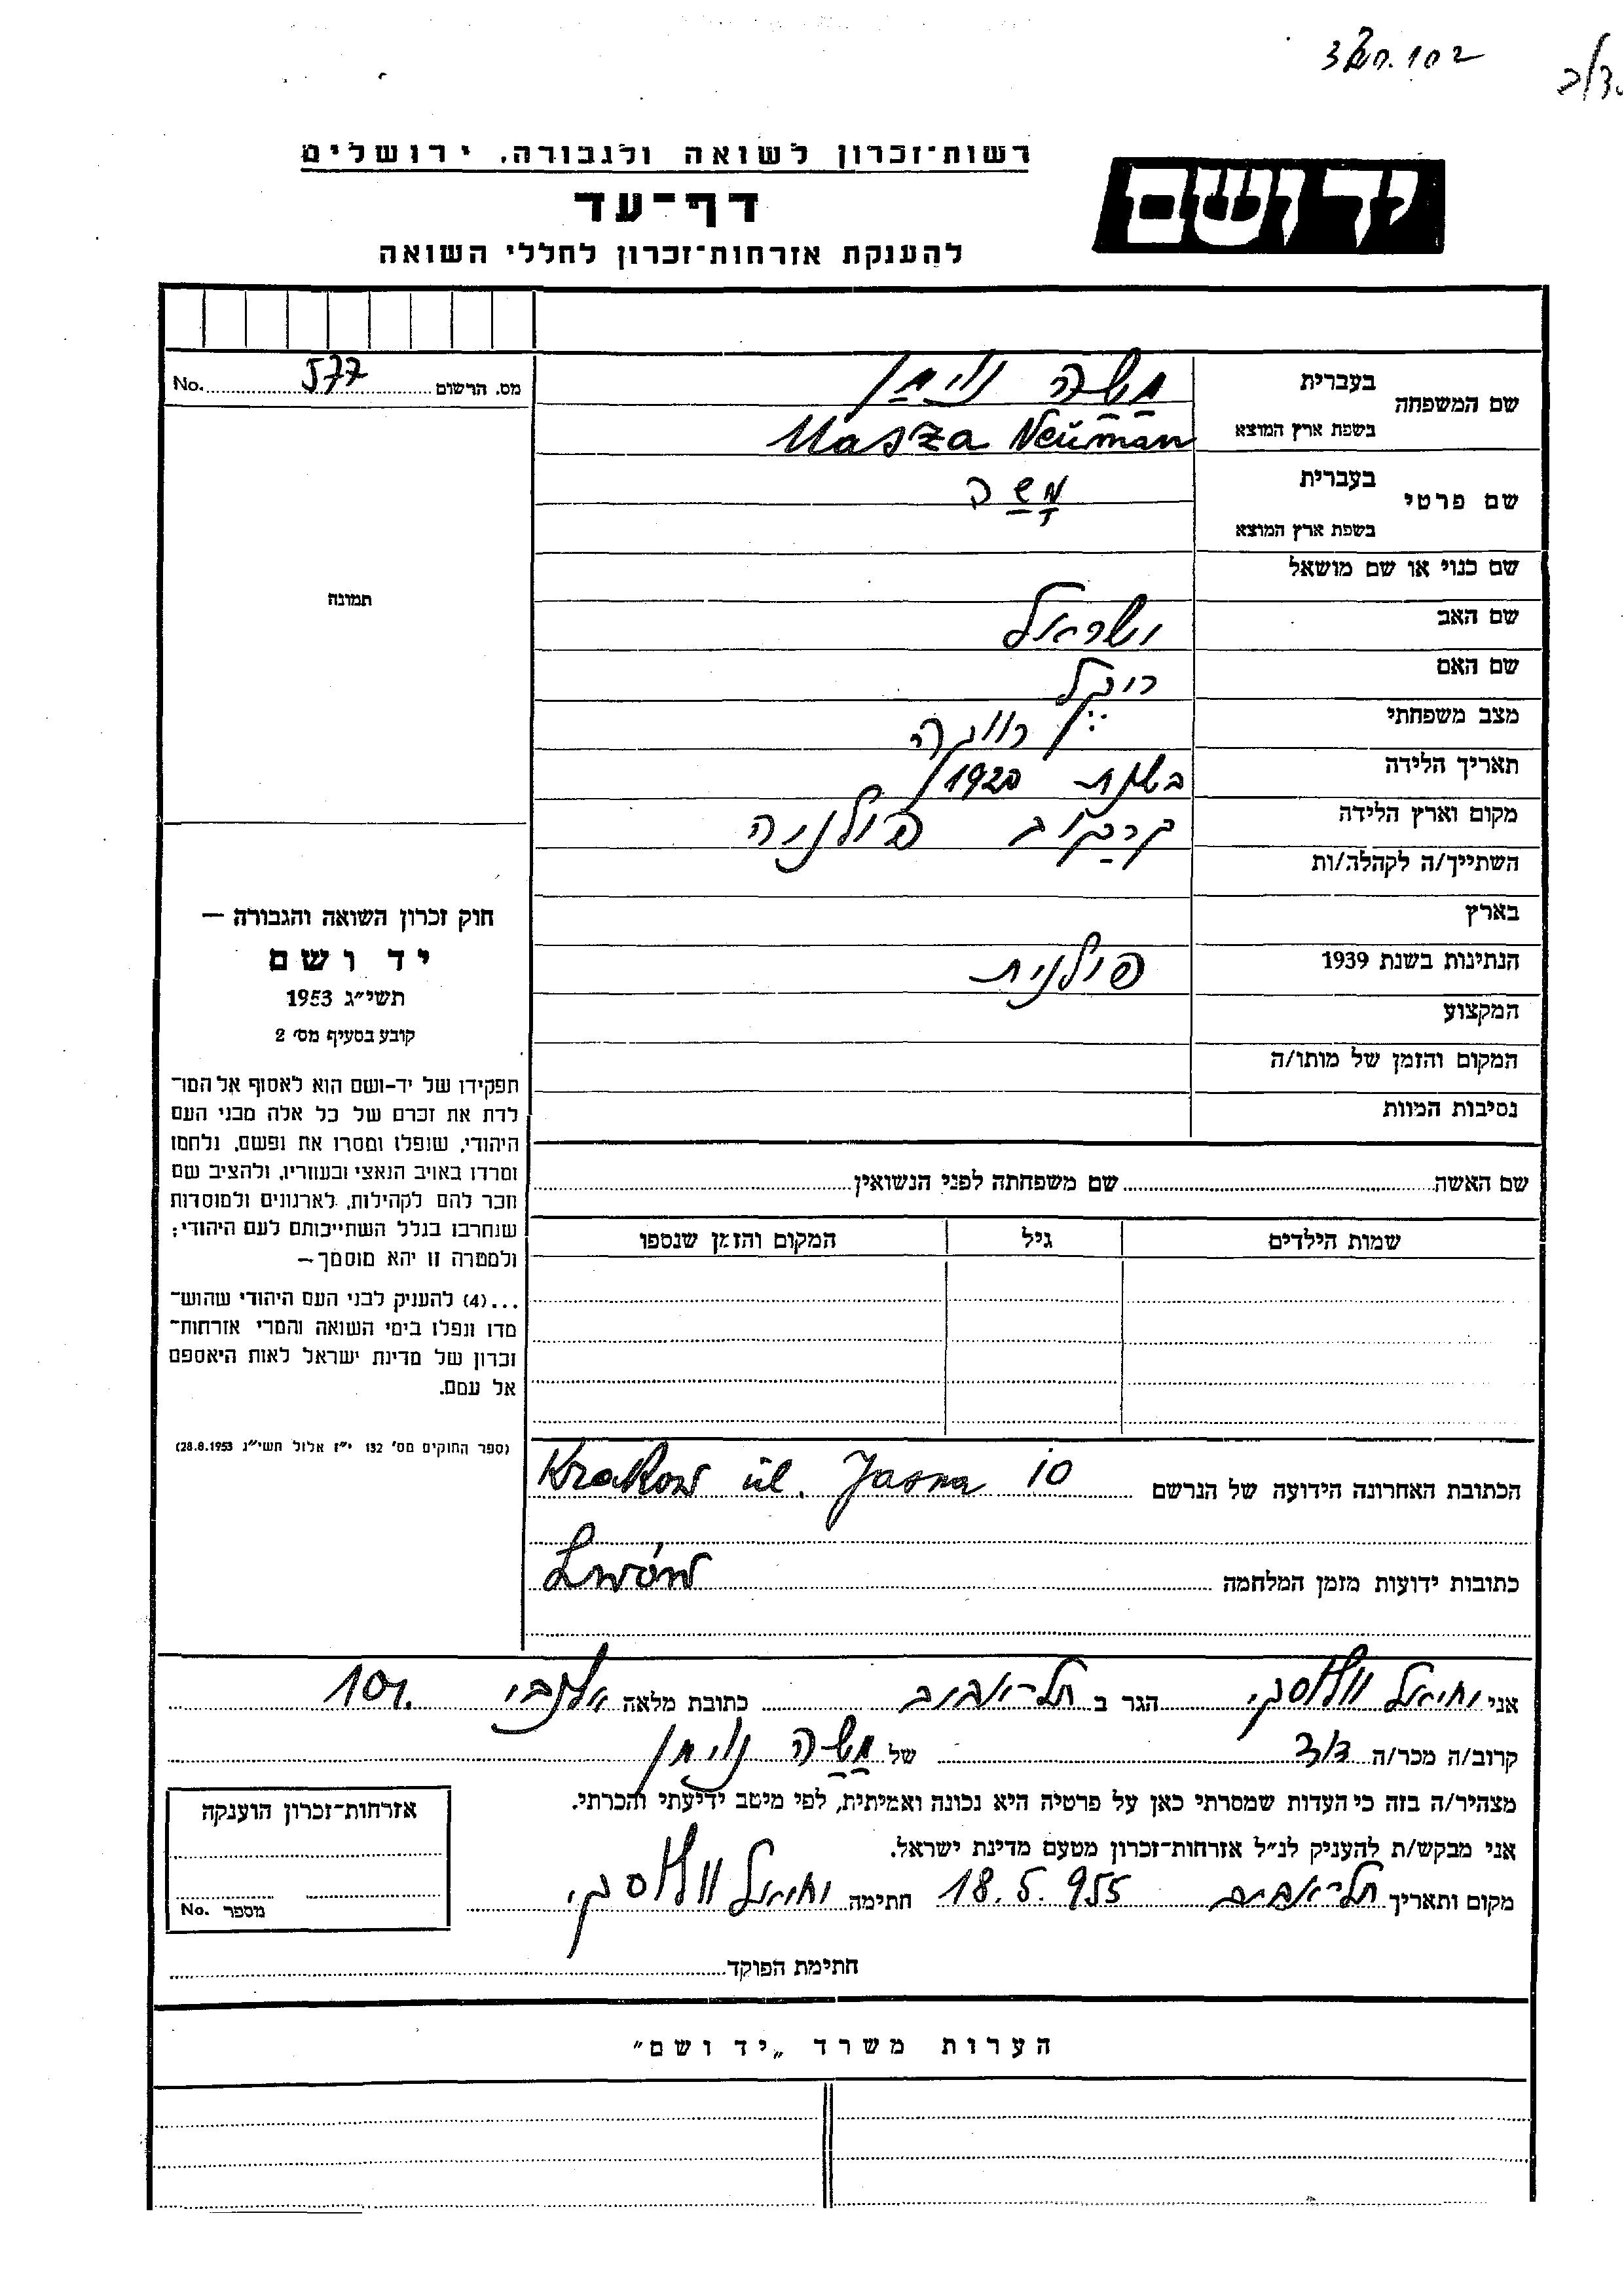 102
רשות־זכרון לשואה ולגבורה, ירושלים
יד ושם
דף־עד
להענקת אזרחות־זכרון לחללי השואה
מס. הרשום 577 No.
תמונה
חוק זכרון השואה והגבורה —
יד ושם
תשי״ג 1953
קובע בסעיף מס׳ 2
תפקידו של יד-ושם הוא לאסוף אל המו־
לדת את זכרם של כל אלה מבני העם
היהודי, שנפלו ומסרו את נפשם, נלחמו
ומרדו באויב הנאצי ובעוזריו, ולהציב שם
וזכר להם לקהילות, לארגונים ולמוסדות
שנחרבו בגלל השתייכותם לעם היהודי;
ולמטרה זו יהא מוסמך—
...(4) להעניק לבני העם היהודי שהוש־
מדו ונפלו בימי השואה והמרי אזרחות־
זכרון של מדינת ישראל לאות היאספם
אל עמם.
(ספר החוקים מס׳ 132 י״ז אלול תשי״ג 28.8.1953)
שם המשפחה בעברית משה נוימן
בשפת ארץ המוצא Masza Neuman
שם פרטי בעברית משה
בשפת ארץ המוצא
שם כנוי או שם מושאל
שם האב ישראל
שם האם רוקל
מצב משפחתי רווקה
תאריך הלידה בשנת 1920
מקום וארץ הלידה קרקוב פולניה
השתייך/ה לקהלה/ות
בארץ
הנתינות בשנת 1939 פולנית
המקצוע
המקום והזמן של מותו/ה
נסיבות המוות
שם האשה שם משפחתה לפני הנשואין
שמות הילדים גיל המקום והזמן שנספו
הכתובת האחרונה הידועה של הנרשם Krakow ul. Jasna 10
כתובות ידועות מזמן המלחמה Lwów
אני יחיאל הגר ב תל־אביב כתובת מלאה אלנבי 101
קרוב/ה מכר/ה דוד של משה נוימן
מצהיר/ה בזה כי העדות שמסרתי כאן על פרטיה היא נכונה ואמיתית, לפי מיטב ידיעתי והכרתי.
אני מבקש/ת להעניק לנ״ל אזרחות־זכרון מטעם מדינת ישראל.
מקום ותאריך תל־אביב 18.5.955 חתימה יחיאל
חתימת הפוקד
אזרחות־זכרון הוענקה
מספר No.
הערות משרד „יד ושם״